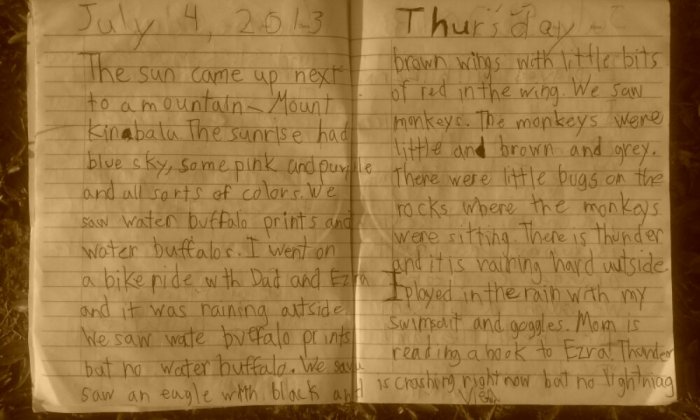 July 4, 2013
The sun came up next
to a mountain~ Mount
Kinabalu. The sunrise had
blue sky, some pink and purple
and all sorts of colors. We
saw water buffalo prints and
water buffalos. I went on
a bike ride with Dad and Ezra
and it was raining outside.
We saw wate buffalo prints
but no water buffalo. We saw
saw an eagle with black and
Thursday
brown wings with little bits
of red in the wing. We saw
monkeys. The monkeys were
little and brown and grey.
There were little bugs on the
rocks where the monkeys
were sitting. There is thunder
and it is raining hard outside.
I played in the rain with my
swimsuit and goggles. Mom is
reading a book to Ezra. Thunder
is crashing right now but no lightning